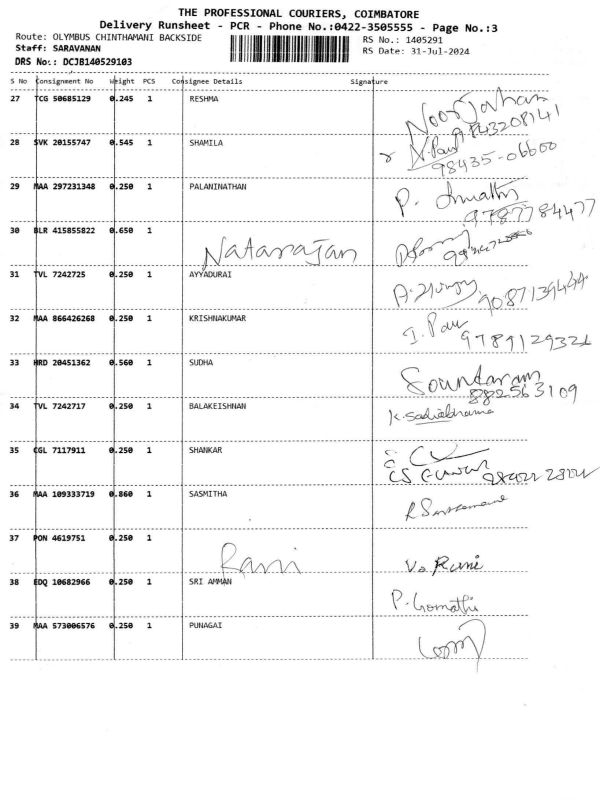 THE PROFESSIONAL COURIERS, COIMBATORE
Delivery Runsheet - PCR - Phone No.:0422-3505555 - Page No.:3
Route: OLYMBUS CHINTHAMANI BACKSIDE
RS No.: 1405291
Staff: SARAVANAN
RS Date: 31-Jul-2024
DRS No.: DCJB140529103
S No Consignment No Weight PCS Consignee Details Signature
27 TCG 50685129 0.245 1 RESHMA Noorjahan
9843208141
28 SVK 20155747 0.545 1 SHAMILA N. Paul
98435-06600
29 MAA 297231348 0.250 1 PALANINATHAN P.
9787784477
30 BLR 415855822 0.650 1
Natarajan
31 TVL 7242725 0.250 1 AYYADURAI
9087139444
32 MAA 866426268 0.250 1 KRISHNAKUMAR
9789129321
33 HRD 20451362 0.560 1 SUDHA Soundaram
882563109
34 TVL 7242717 0.250 1 BALAKEISHNAN
35 CGL 7117911 0.250 1 SHANKAR
36 MAA 109333719 0.860 1 SASMITHA
37 PON 4619751 0.250 1
Rani Vs Rani
38 EDQ 10682966 0.250 1 SRI AMMAN P. Gomathi
39 MAA 573006576 0.250 1 PUNAGAI